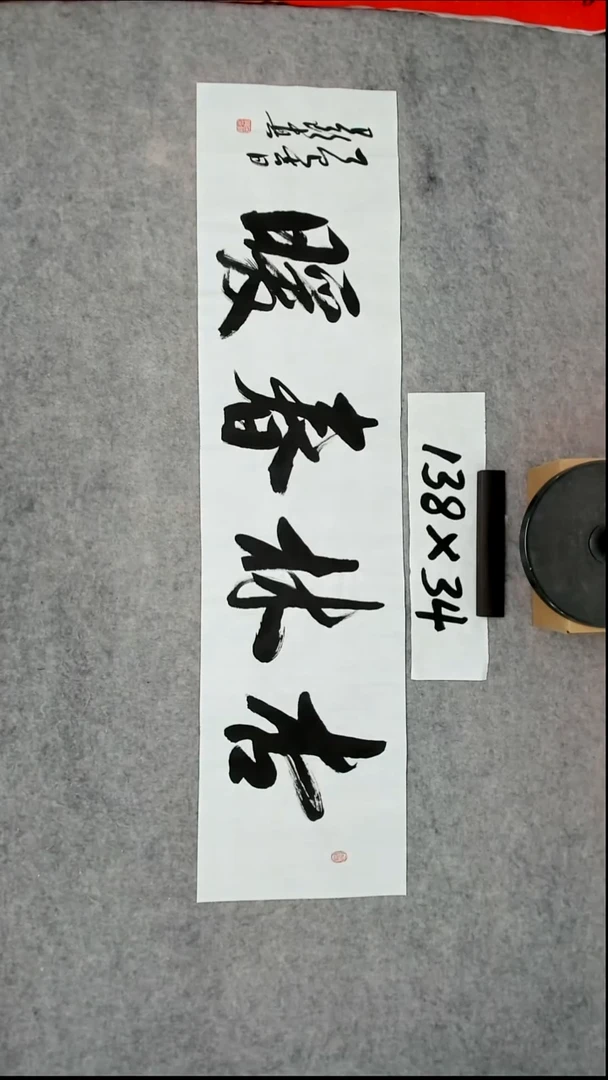 杏林春暖
138×34